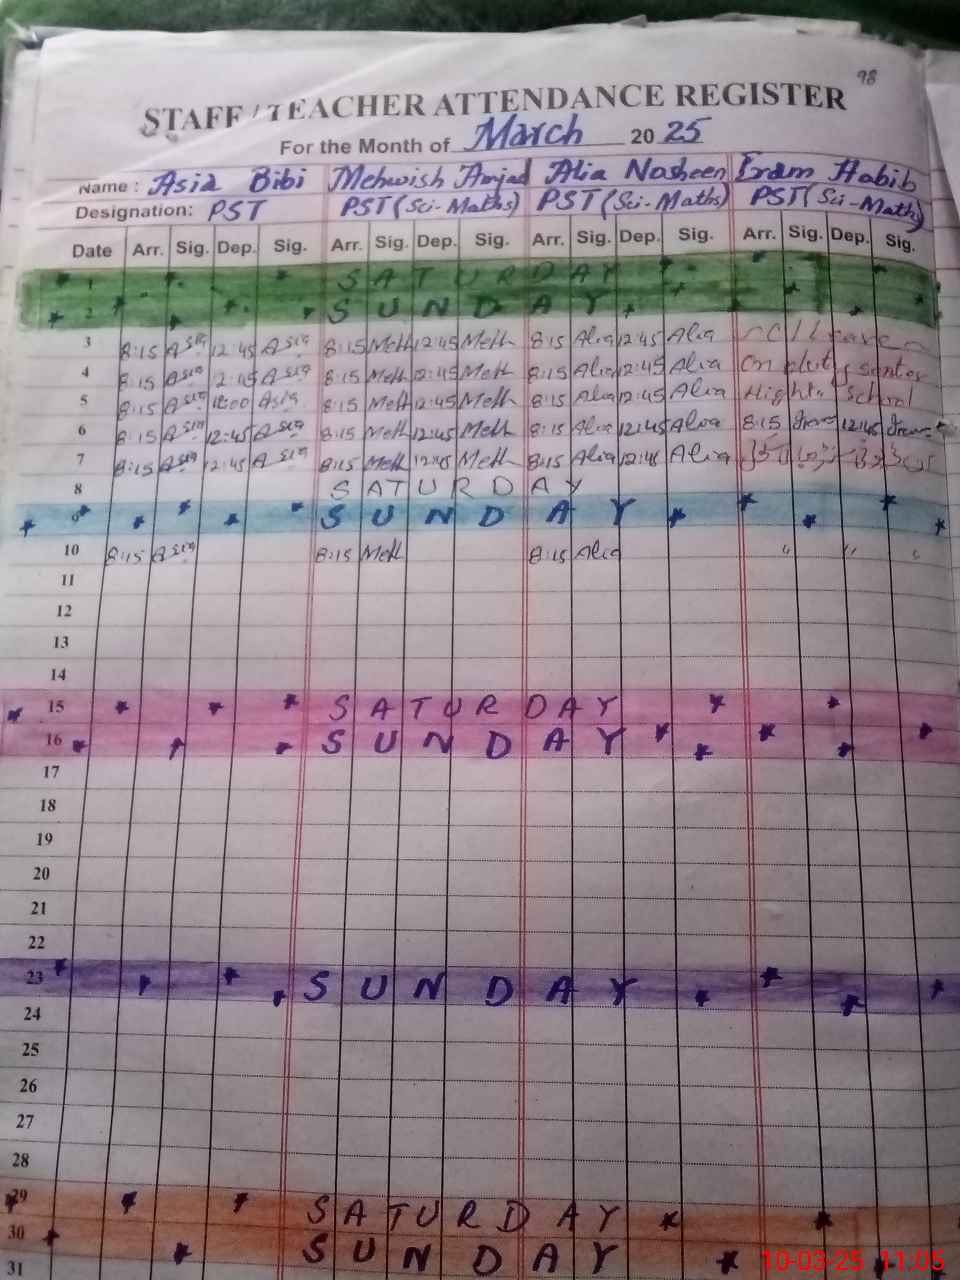 98
STAFF / TEACHER ATTENDANCE REGISTER
For the Month of March 2025
Name : Asia Bibi Mehwish Amjad Alia Nosheen Iram Habib
Designation: PST PST (Sci-Maths) PST (Sci-Maths) PST (Sci-Math)
Date Arr. Sig. Dep. Sig. Arr. Sig. Dep. Sig. Arr. Sig. Dep. Sig. Arr. Sig. Dep. Sig.
1 SATURDAY
2 SUNDAY
3 8:15 Asia 12:45 Asia 8:15 Meh 12:45 Meh 8:15 Alia 12:45 Alia
4 8:15 Asia 12:45 Asia 8:15 Meh 12:45 Meh 8:15 Alia 12:45 Alia On duty
5 8:15 Asia Asia 8:15 Meh 12:45 Meh 8:15 Alia 12:45 Alia High School
6 8:15 Asia 12:45 Asia 8:15 Meh 12:45 Meh 8:15 Alia 12:45 Alia 8:15 Iram 12:45 Iram
7 8:15 Asia 12:45 Asia 8:15 Meh 12:45 Meh 8:15 Alia 12:45 Alia
8 SATURDAY
9 SUNDAY
10 8:15 Asia 8:15 Meh 8:15 Alia " " "
11
12
13
14
15 SATURDAY
16 SUNDAY
17
18
19
20
21
22
23 SUNDAY
24
25
26
27
28
29 SATURDAY
30 SUNDAY
31
10-03-25 11:05